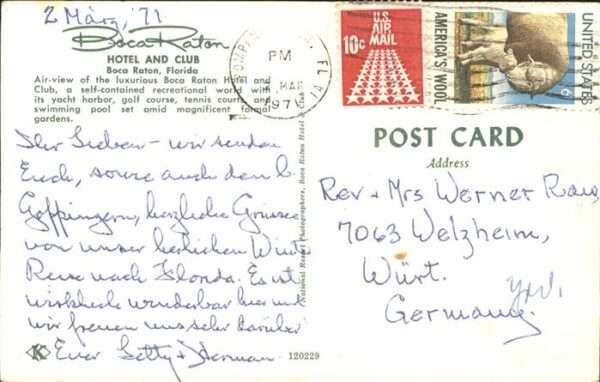 2 März, '71
Boca Raton
HOTEL AND CLUB
Boca Raton, Florida
Air-view of the luxurious Boca Raton Hotel and
Club, a self-contained recreational world with
its yacht harbor, golf course, tennis courts and
swimming pool set amid magnificent formal
gardens.
Ihr Lieben - wir senden
Euch, sowie auch den l.
Göppingern, herzliche Grüsse
von unser herrlichen Winter
Reise nach Florida. Es ist
wirklich wunderbar hier und
wir freuen uns sehr darüber
Euer Betty + Herman
K
120229
National Resort Photographers, Boca Raton Hotel & Club
PM
MAR
1971
FL
U.S.
AIR
MAIL
10c
AMERICA'S WOOL
UNITED STATES
6c
POST CARD
Address
Rev + Mrs Werner Rau,
7063 Welzheim,
Württ.
Germany.